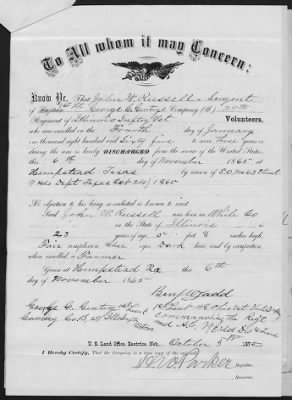 To All whom it may Concern:
Know Ye, That John W. Russell a Sergent
of Captain George C. Gentry Company (B,) 29th
Regiment of Illinois Inftry Vol Volunteers,
who was enrolled on the Fourth day of January
one thousand eight hundred and Sixty five to serve Three years or
during the war is hereby DISCHARGED from the service of the United States,
this 6th day of November 1865 at
Hempstead Texas by reason of S.O. No 63
Dept Texas Oct 24/1865
No objection to his being re-enlisted is known to exist
Said John W. Russell was born in White Co
in the State of Illinois is
23 years of age 5 feet 8 inches high,
Fair complexion, Blue eyes, Dark hair, and by occupation,
when enrolled, a Farmer
Given at Hempstead this 6th
day of November 1865
George C. Gentry
Comdg Co B. 29 Ills
Commanding the Regt
U. S. Land Office, Beatrice, Neb., October 1875
I Hereby Certify, That the foregoing is a true copy of the
Parker
Register.
Receiver.